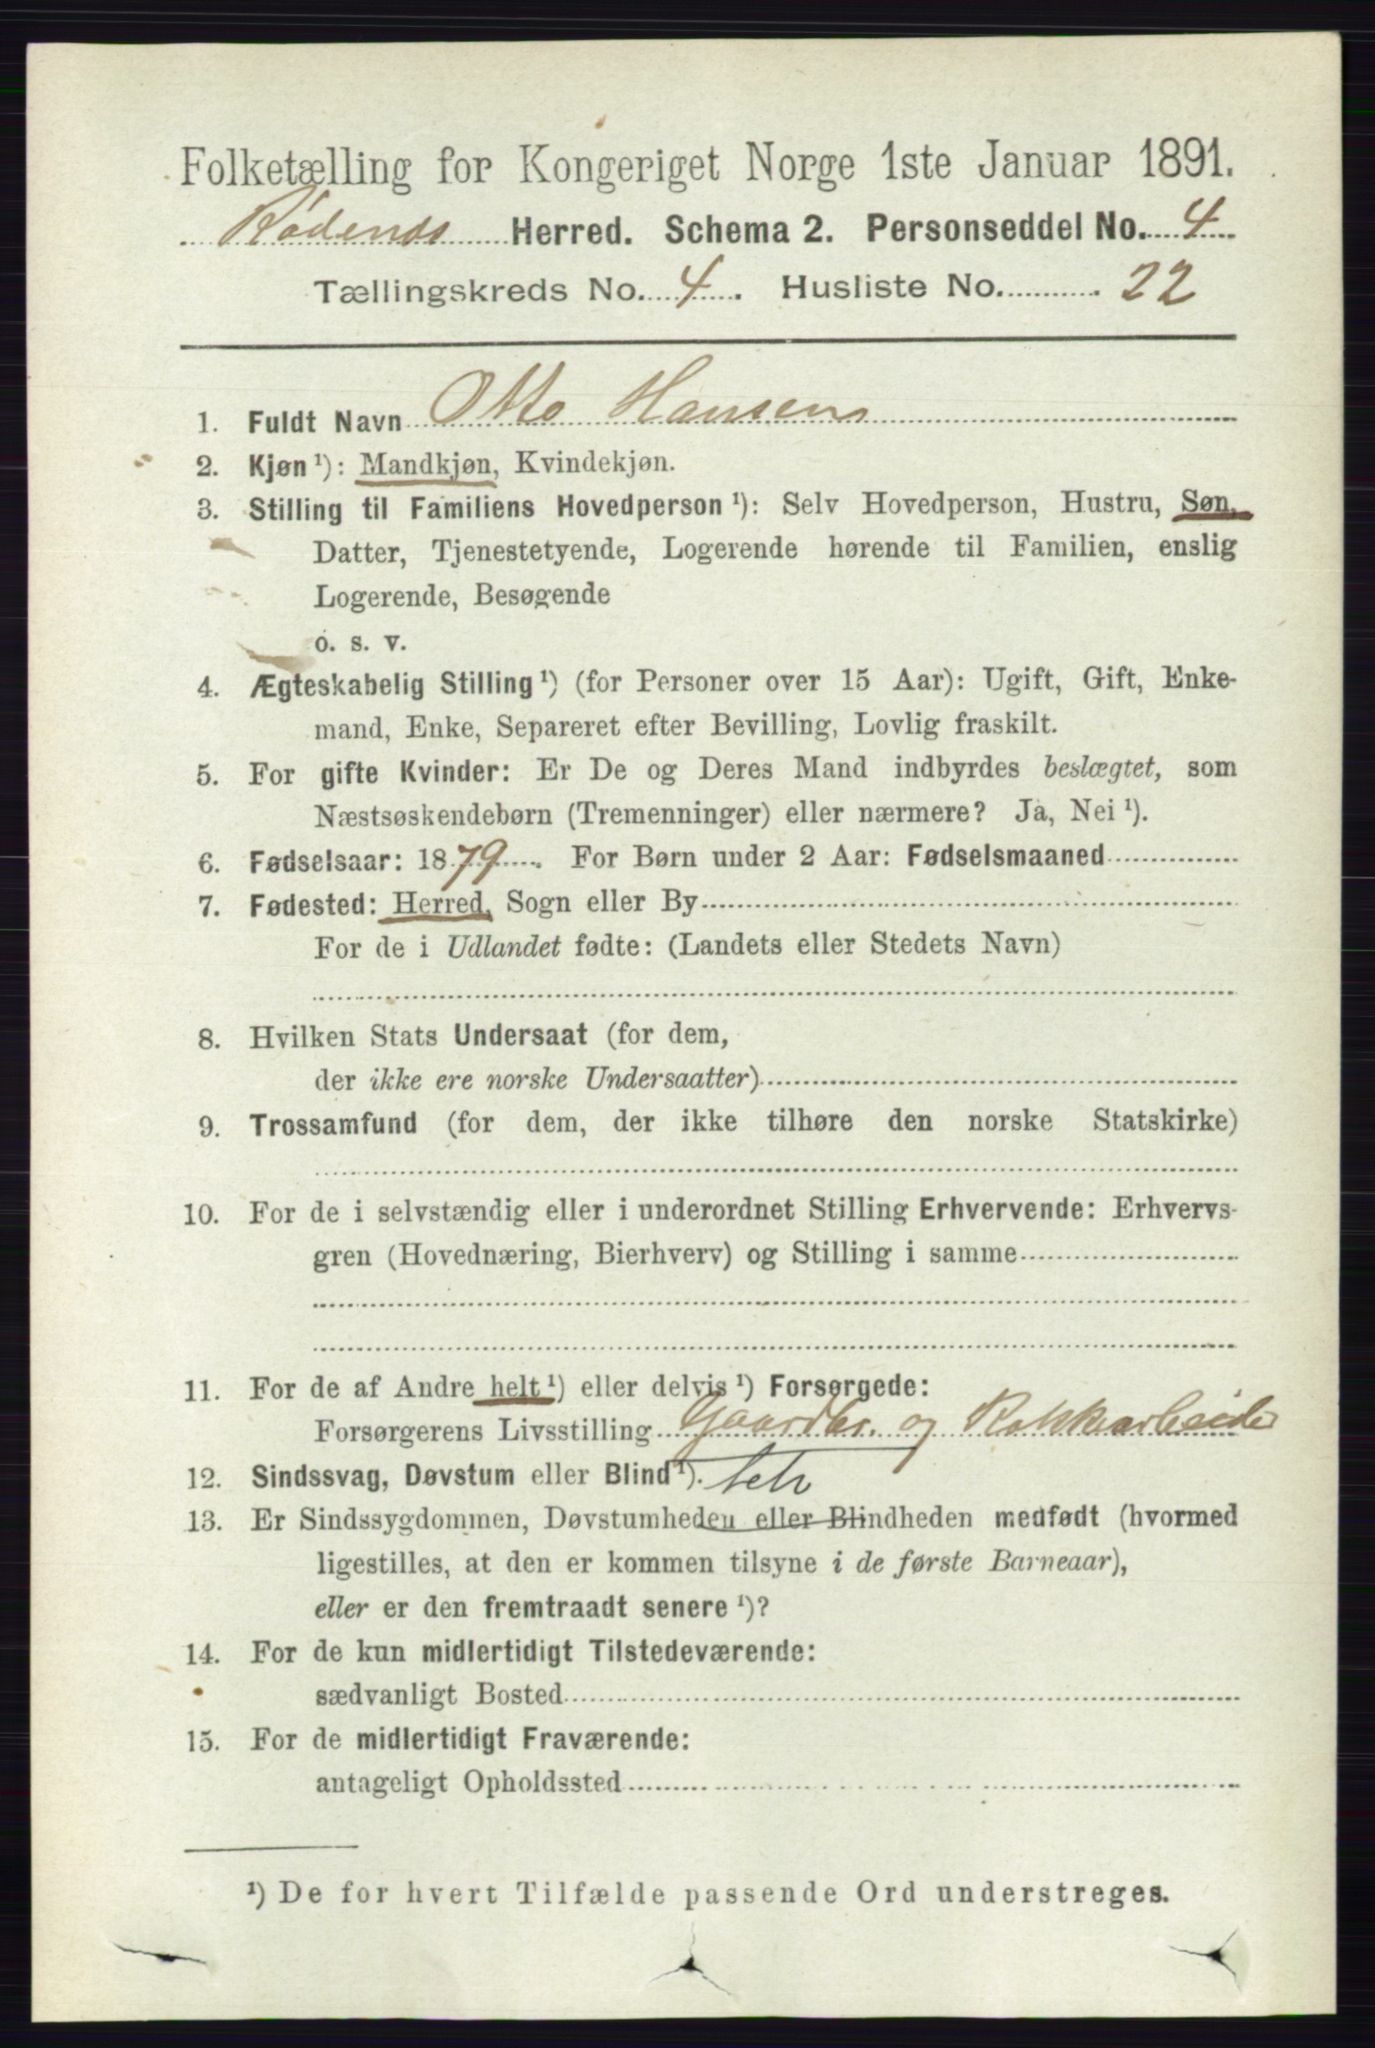 Folketælling for Kongeriget Norge 1ste Januar 1891.
Rødenæs Herred. Schema 2. Personseddel No. 4
Tællingskreds No. 4. Husliste No. 22
1. Fuldt Navn Otto Hansen
2. Kjøn ¹): Mandkjøn, Kvindekjøn.
3. Stilling til Familiens Hovedperson ¹): Selv Hovedperson, Hustru, Søn,
Datter, Tjenestetyende, Logerende hørende til Familien, enslig
Logerende, Besøgende
o. s. v.
4. Ægteskabelig Stilling ¹) (for Personer over 15 Aar): Ugift, Gift, Enke-
mand, Enke, Separeret efter Bevilling, Lovlig fraskilt.
5. For gifte Kvinder: Er De og Deres Mand indbyrdes beslægtet, som
Næstsøskendebørn (Tremenninger) eller nærmere? Ja, Nei ¹).
6. Fødselsaar: 1879. For Børn under 2 Aar: Fødselsmaaned
7. Fødested: Herred, Sogn eller By
For de i Udlandet fødte: (Landets eller Stedets Navn)
8. Hvilken Stats Undersaat (for dem,
der ikke ere norske Undersaatter)
9. Trossamfund (for dem, der ikke tilhøre den norske Statskirke)
10. For de i selvstændig eller i underordnet Stilling Erhvervende: Erhvervs-
gren (Hovednæring, Bierhverv) og Stilling i samme
11. For de af Andre helt ¹) eller delvis ¹) Forsørgede:
Forsørgerens Livsstilling Gaardbr. og Rokkearbeide
12. Sindssvag, Døvstum eller Blind ¹).
13. Er Sindssygdommen, Døvstumheden eller Blindheden medfødt (hvormed
ligestilles, at den er kommen tilsyne i de første Barneaar),
eller er den fremtraadt senere ¹)?
14. For de kun midlertidigt Tilstedeværende:
sædvanligt Bosted
15. For de midlertidigt Fraværende:
antageligt Opholdssted
¹) De for hvert Tilfælde passende Ord understreges.